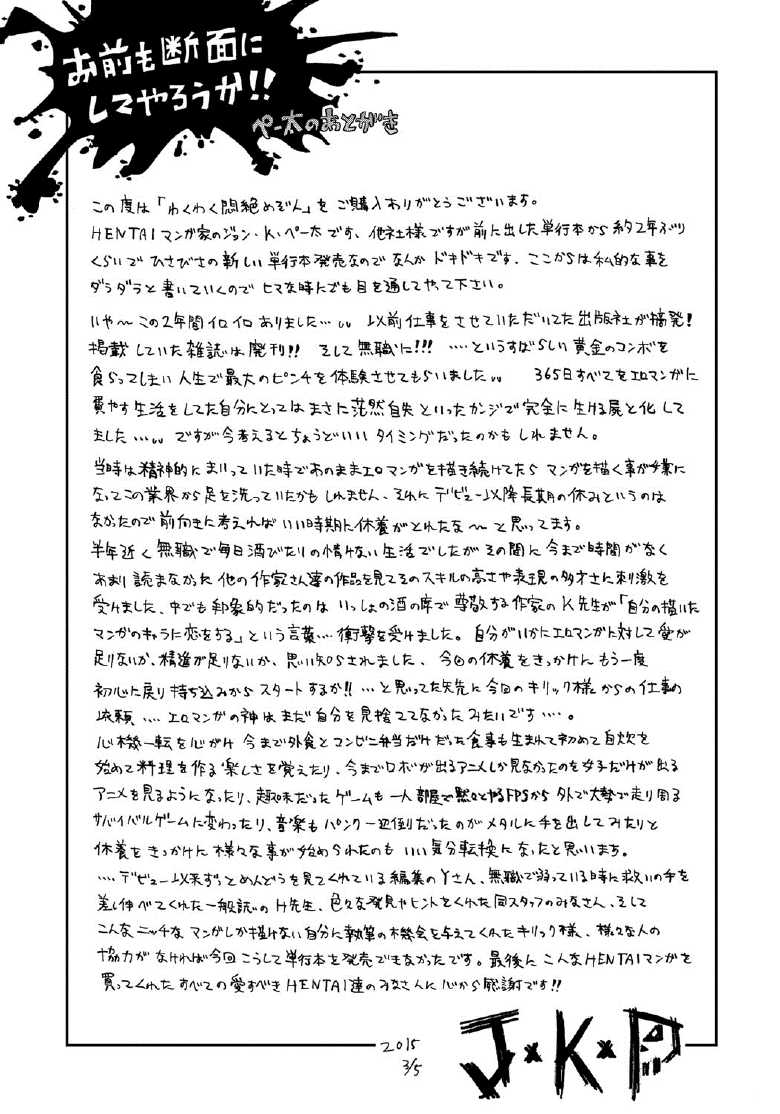 お前も断面に
してやろうか!!
ペー太のあとがき
この度は「わくわく悶絶めぞん」をご購入ありがとうございます。
HENTAIマンガ家のジョン・K・ペー太です、他社様ですが前に出した単行本から約2年ぶり
くらいでひさびさの新しい単行本発売なのでなんかドキドキです、ここからは私的な事を
ダラダラと書いていくのでヒマな時にでも目を通してやって下さい。
いや〜この2年間イロイロありました…。。以前仕事をさせていただいてた出版社が摘発!
掲載していた雑誌は廃刊!! そして無職に!!! ‥‥というすばらしい黄金のコンボを
食らってしまい人生で最大のピンチを体験させてもらいました。。 365日すべてをエロマンガに
費やす生活をしてた自分にとってはまさに茫然自失といったカンジで完全に生ける屍と化して
ました…。。ですが今考えるとちょうどいいタイミングだったのかもしれません。
当時は精神的にまいっていた時であのままエロマンガを描き続けてたらマンガを描く事が苦業に
なってこの業界から足を洗っていたかもしれません、それにデビュー以降長期の休みというのは
なかったので前向きに考えればいい時期に休養がとれたな〜と思ってます。
半年近く無職で毎日酒びたりの情けない生活でしたがその間に今まで時間がなく
あまり読まなかった他の作家さん達の作品を見てそのスキルの高さや表現の多才さに刺激を
受けました、中でも印象的だったのはいっしょの酒の席で尊敬する作家のK先生が「自分の描いた
マンガのキャラに恋をする」という言葉…衝撃を受けました。自分がいかにエロマンガに対して愛が
足りないか、精進が足りないか、思い知らされました、今回の休養をきっかけにもう一度
初心に戻り持ち込みからスタートするか!! …と思ってた矢先に今回のキリック様からの仕事の
依頼‥‥エロマンガの神はまだ自分を見捨ててなかったみたいです‥‥。
心機一転を心がけ今まで外食とコンビニ弁当だけだった食事も生まれて初めて自炊を
始めて料理を作る楽しさを覚えたり、今までロボが出るアニメしか見なかったのを女子だけが出る
アニメを見るようになったり、趣味だったゲームも一人部屋で黙々とやるFPSから外で大勢で走り周る
サバイバルゲームに変わったり、音楽もパンク一辺倒だったのがメタルに手を出してみたりと
休養をきっかけに様々な事が始められたのもいい気分転換になったと思います。
‥‥デビュー以来ずっとめんどうを見てくれている編集のYさん、無職で弱っている時に救いの手を
差し伸べてくれた一般誌のH先生、色々な発見やヒントをくれた同スタッフのみなさん、そして
こんなニッチなマンガしか描けない自分に執筆の機会を与えてくれたキリック様、様々な人の
協力がなければ今回こうして単行本を発売できなかったです。最後にこんなHENTAIマンガを
買ってくれたすべての愛すべきHENTAI達のみなさんに心から感謝です!!
2015
3/5
J×K×P